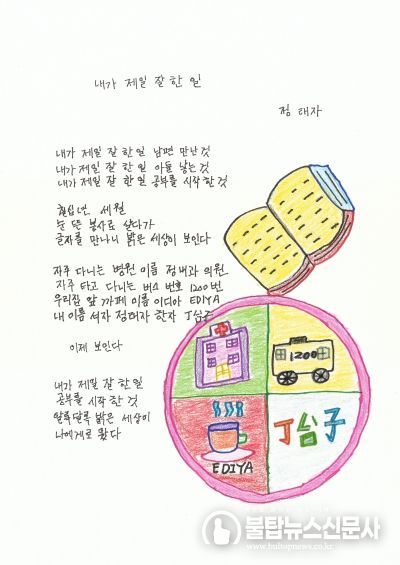 내가 제일 잘 한 일
정 태자
내가 제일 잘 한 일 남편 만난것
내가 제일 잘 한 일 아들 낳는것
내가 제일 잘 한 일 공부를 시작 한것
칠십년 세월
눈 뜬 봉사로 살다가
글자를 만나니 밝은 세상이 보인다
자주 다니는 병원 이름 정내과 의원
자주 타고 다니는 버스 번호 1200번
우리집 앞 까페 이름 이디야 EDIYA
내 이름 석자 정태자 한자 丁台子
이제 보인다
내가 제일 잘 한 일
공부를 시작 한 것
알록달록 밝은 세상이
나에게로 왔다
1200
EDIYA
丁台子
불탑뉴스신문사
www.bultapnews.co.kr